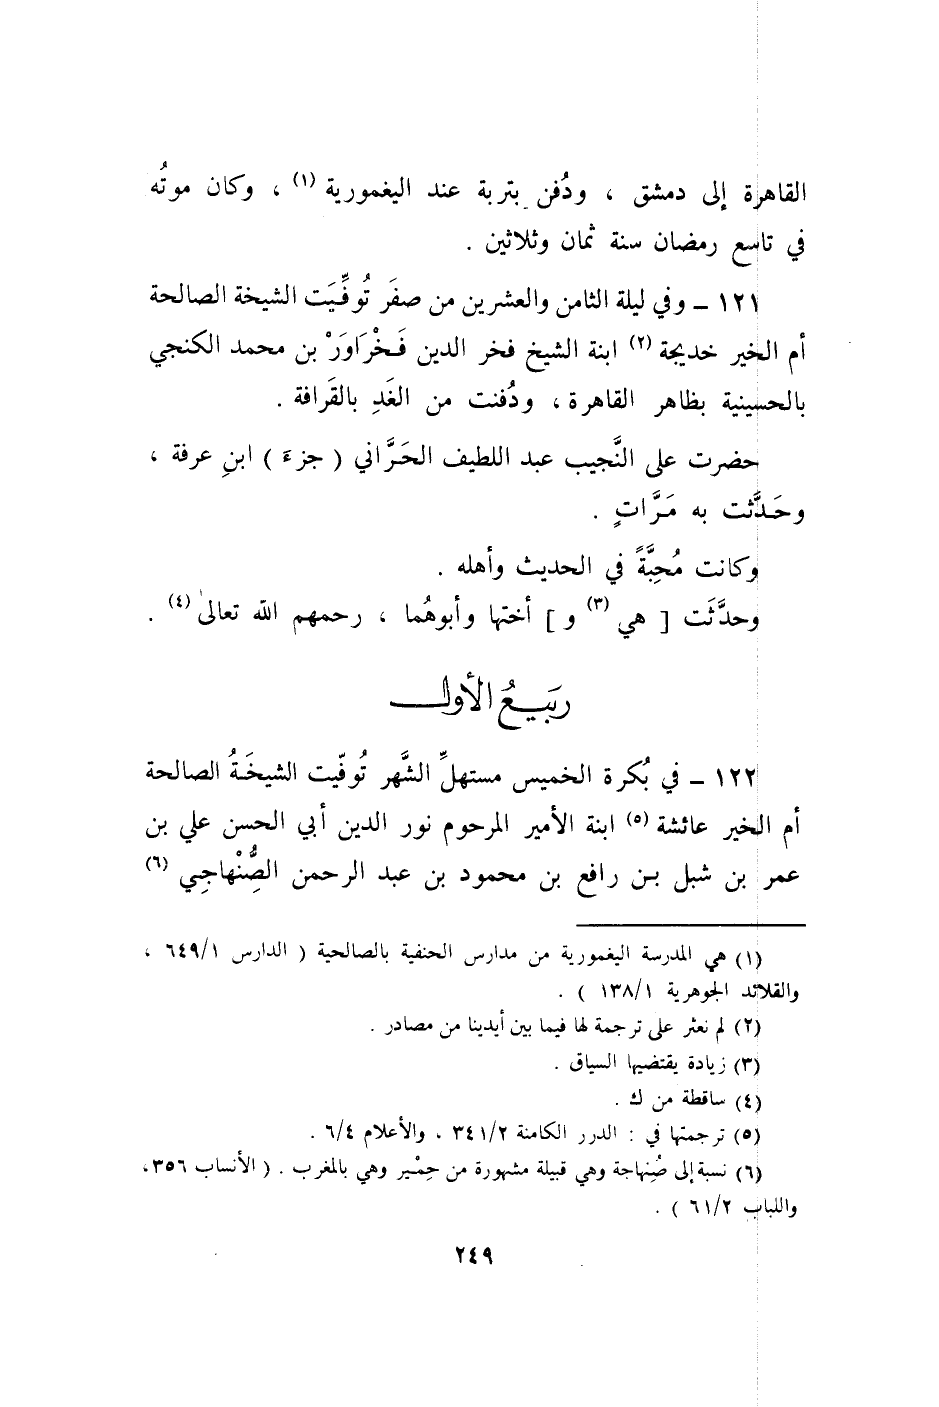 القاهرة إلى دمشق ، ودُفن بتربة عند اليغمورية (١) ، وكان موتُه
في تاسع رمضان سنة ثمان وثلاثين .
١٢١ ــ وفي ليلة الثامن والعشرين من صفَر تُوفِّيَت الشيخة الصالحة
أم الخير خديجة (٢) ابنة الشيخ فخر الدين فَخْرَاوَرْ بن محمد الكنجي
بالحسينية بظاهر القاهرة ، ودُفنت من الغَدِ بالقَرافة .
حضرت على النَّجيب عبد اللطيف الحَرَّاني ( جزءَ ) ابنِ عرفة ،
وحَدَّثت به مَرَّاتٍ .
وكانت مُحِبَّةً في الحديث وأهله .
وحدَّثَت [ هي (٣) و ] أختها وأبوهُما ، رحمهم الله تعالىٰ (٤) .
ربيعُ الأول
١٢٢ ــ في بُكرة الخميس مستهلِّ الشَّهر تُوفّيت الشيخَةُ الصالحة
أم الخير عائشة (٥) ابنة الأمير المرحوم نور الدين أبي الحسن علي بن
عمر بن شبل بن رافع بن محمود بن عبد الرحمن الصُِّنْهاجِي (٦)
(١) هي المدرسة اليغمورية من مدارس الحنفية بالصالحية ( الدارس ٦٤٩/١ ،
والقلائد الجوهرية ١٣٨/١ ) .
(٢) لم نعثر على ترجمة لها فيما بين أيدينا من مصادر .
(٣) زيادة يقتضيها السياق .
(٤) ساقطة من ك .
(٥) ترجمتها في : الدرر الكامنة ٣٤١/٢ ، والأعلام ٦/٤ .
(٦) نسبة إلى صُنِهاجة وهي قبيلة مشهورة من حِمْير وهي بالمغرب . ( الأنساب ٣٥٦ ،
واللباب ٦١/٢ ) .
٢٤٩